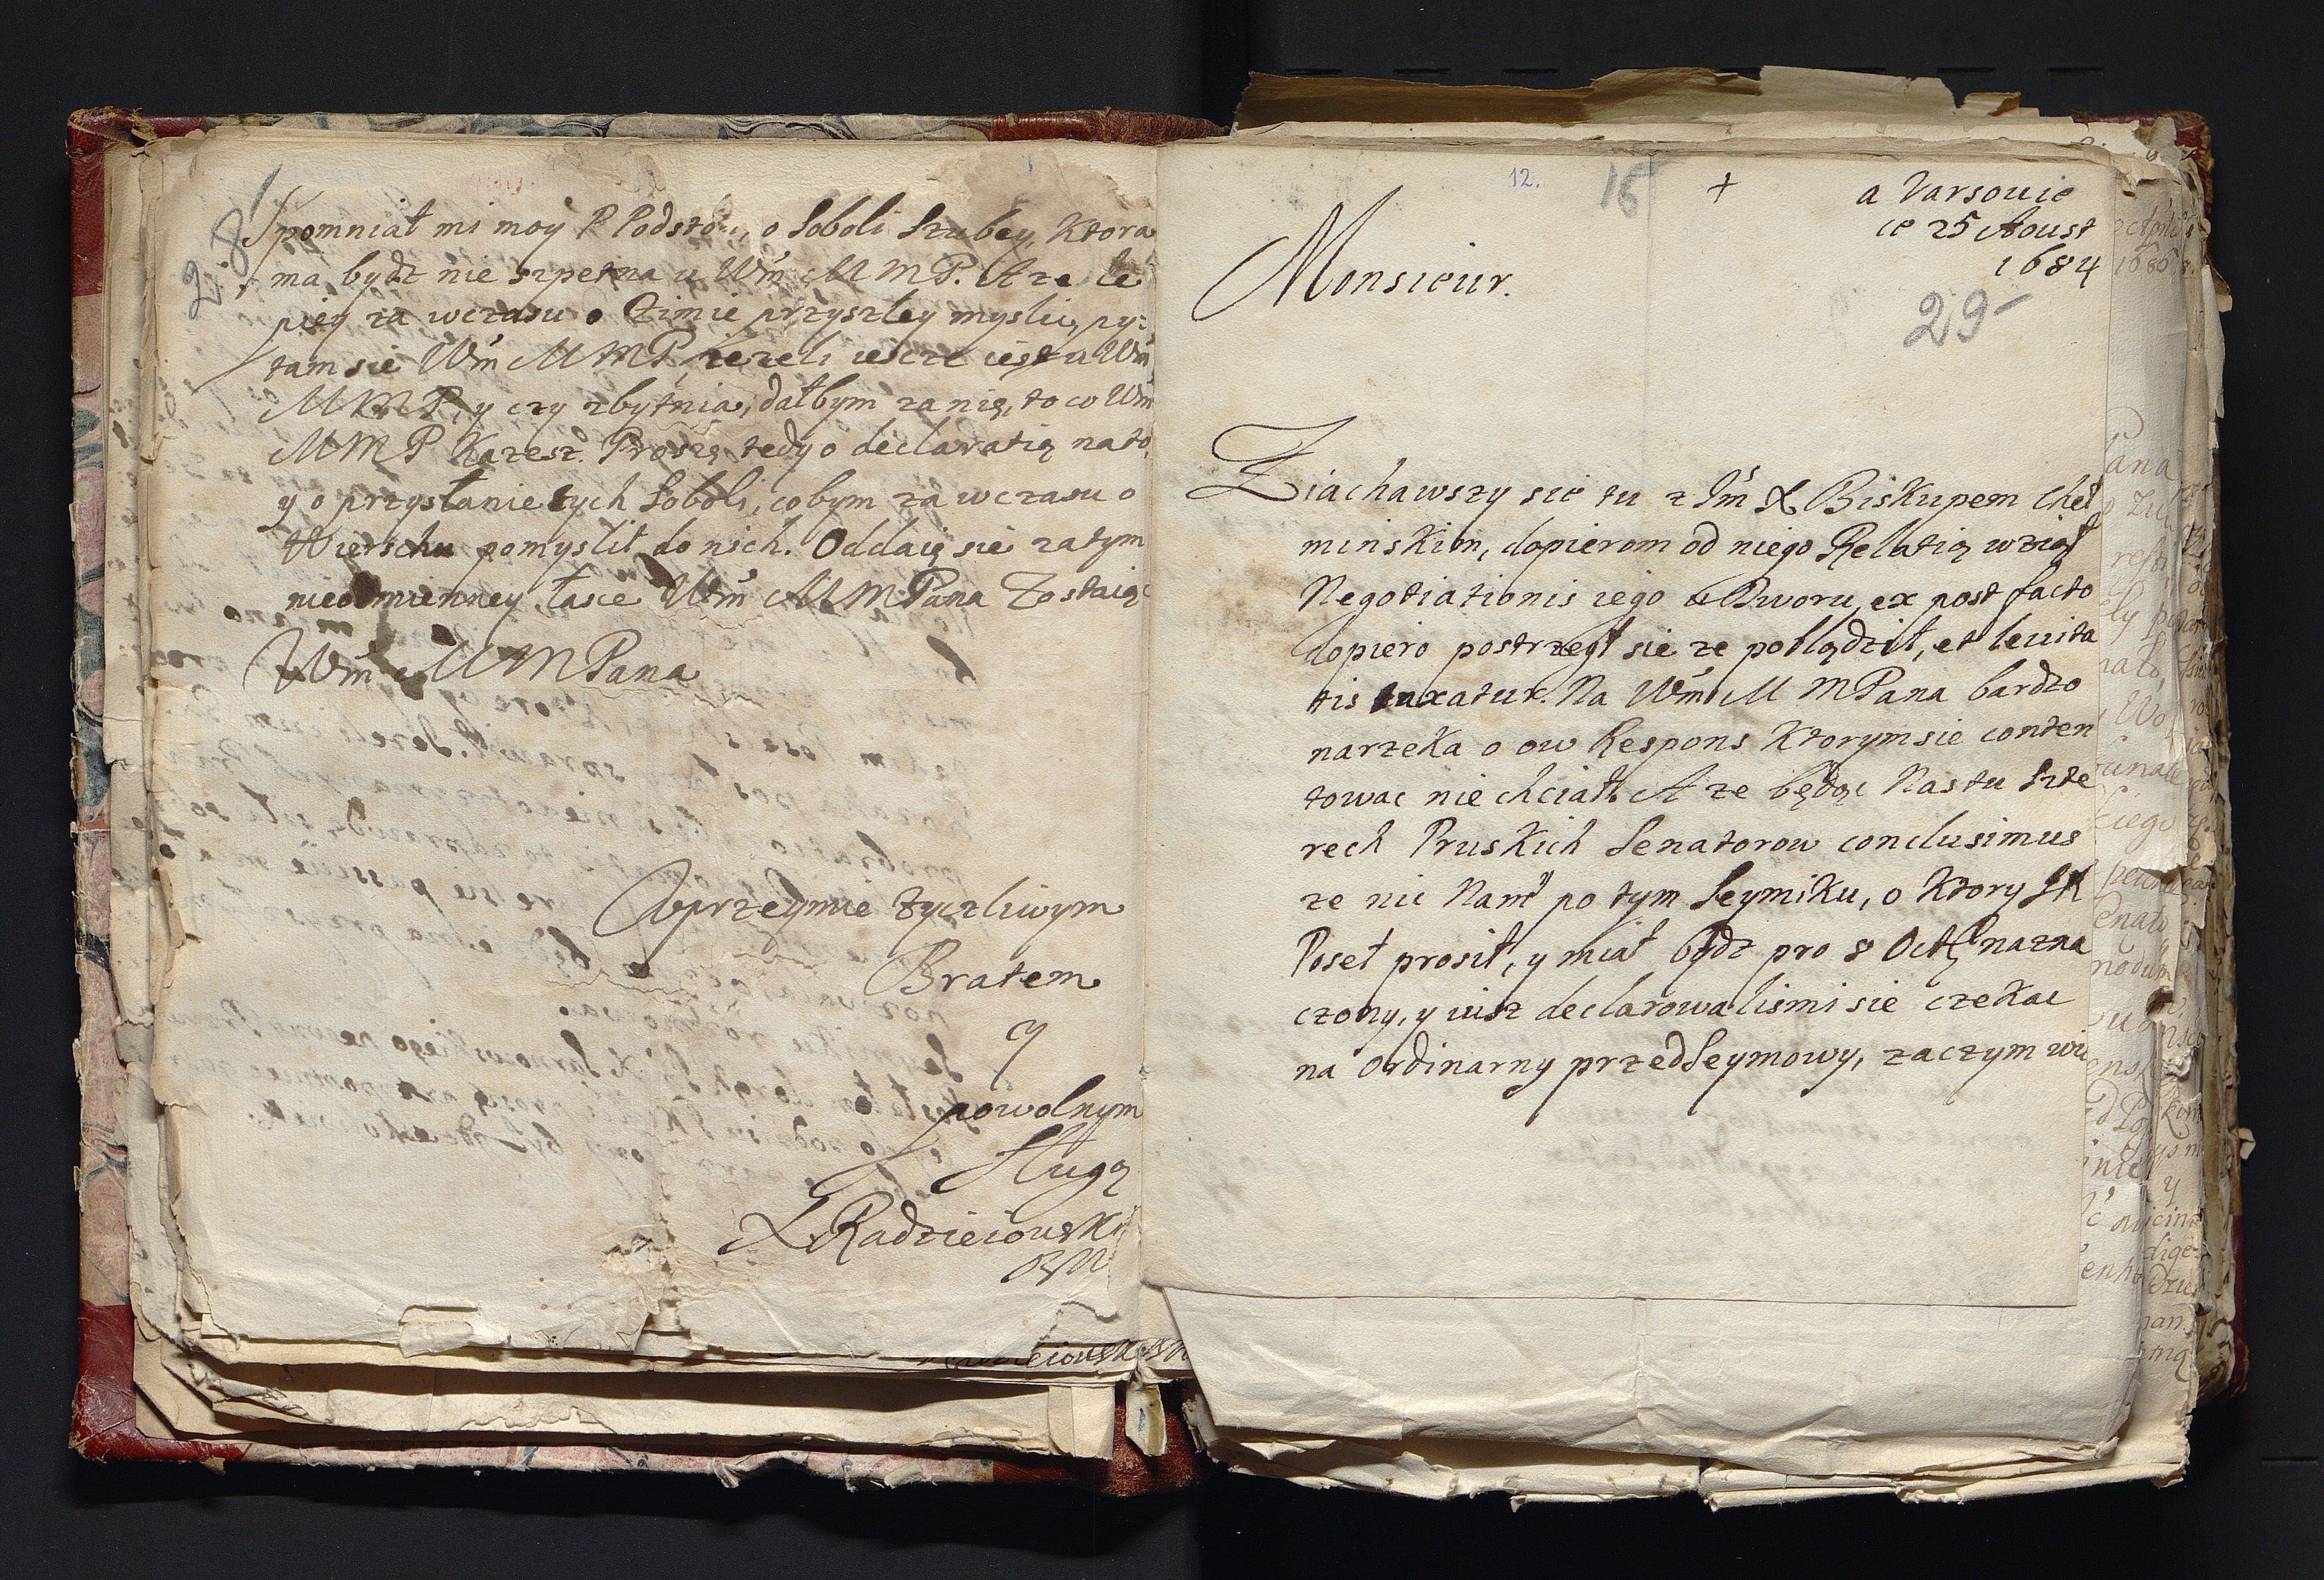 28
Spomniał mi moy P Podstoli, o Soboli Szubey, Ktora
ma bydz nie szpetna u Wm̃ M M P. A ze le
piey za wczasu o Zimie przyszłey myslic, py-
tam sie Wm̃ M M P, iezeli iescze iest u Wm̃
M M P, y czy zbytnia, dałbym za nię, to co Wm̃
M M P Kazesz. Proszę tedy o declaratią na to,
y o przysłanie tych Soboli, cobym za wczasu o
Wierschu pomyslił do nich. Oddaię sie zatym
nieodmienney łasce Wm̃ M M Pana Zostaiąc
Wm̃ M M Pana
Uprzeymie Zyczliwym
Bratem
y
powolnym
Sługą
X Radzieiowski
BW
12.
16
+
a Varsouie
ce 25 Aoust
1684
29
Monsieur.
Ziachawszy sie tu z Jm̃ X Biskupem Cheł
minskim, dopierom od niego Relatią wziął
Negotiationis iego u Dworu, ex post facto
dopiero postrzegł sie ze pobłądził, et levita
tis taxatur. Na Wm̃ M M Pana bardzo
narzeka o ow Respons Ktorym sie conten
towac nie chciał. A ze będąc Nas tu Szte
rech Pruskich Senatorow conclusimus
ze nic Nam po tym Seymiku, o Ktory JK
Poseł prosił, y miał bydz pro 8 Octbr nazna
czony, y iusz declarowalismi sie czekac
na Ordinarny przedSeymowy, zaczym wi